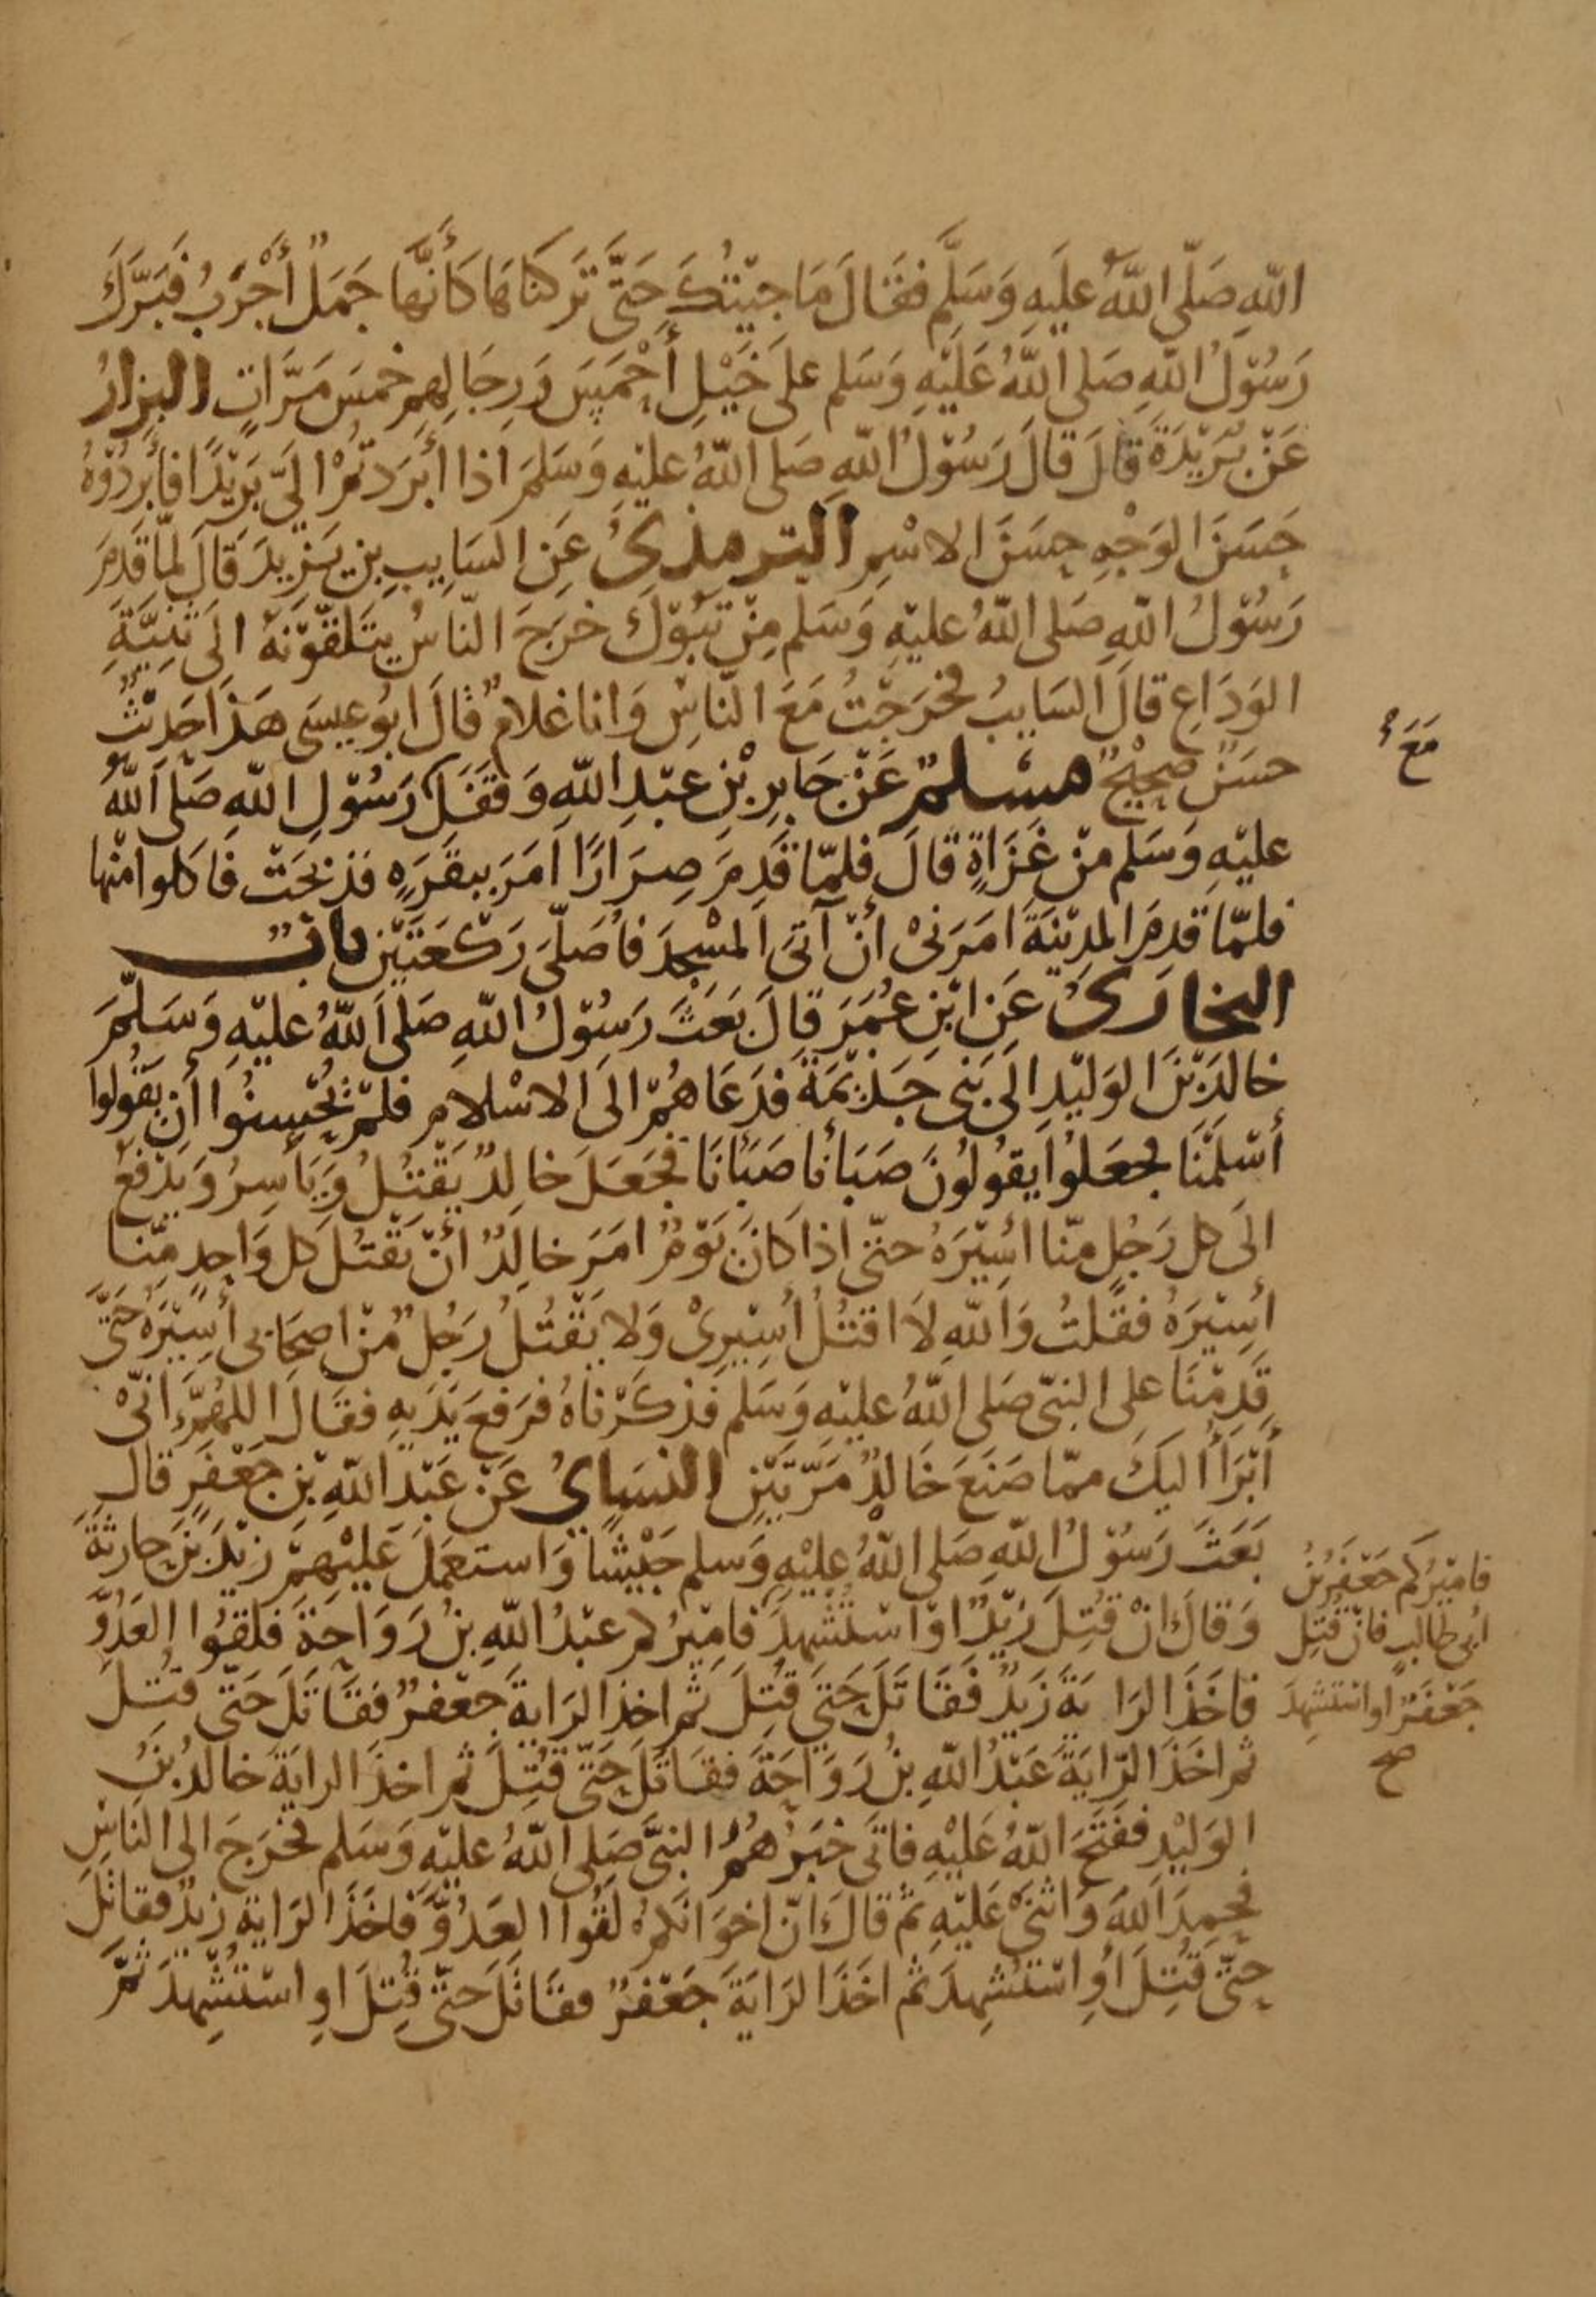 اللهِ صَلّى اللهُ عليَهِ وَسَلَّم فقَالَ مَا جِيْتُكَ حَتَّى تَركنَاهَا كَأَنَّهَا جَمَلٌ أَجْرَبُ فَبَرَّكَ
رَسُوْلُ اللهِ صَلى اللهُ عَلَيْهِ وَسَلم علَى خَيْلِ أَحْمَسَ وَرِجَالِهِم خمسَ مَرَّاتٍ البزارُ
عَنْ بُرَيْدَةَ قالَ قالَ رَسُوْلُ اللهِ صَلى اللهُ عليْهِ وَسَلمَ اذا أَبرَدتُمْ الَىَّ بَرِيْدًا فابَرِدُوْهُ
حَسَنَ الوَجْهِ حسَنَ الاسْمِ الترمذىُ عَنِ السَايبِ بنِ يَزِيدَ قالَ لمّا قدِمَ
رَسُوْلُ اللهِ صَلى اللهُ عليْهِ وَسَلم مِنْ تبُوْكَ خرَجَ النّاسُ يتَلقّوْنَهُ الَى ثَنِيَّةِ
الوَدَاعِ قالَ السَايبُ فخرَجْتُ مَعَ النّاسِ وَانا غلامٌ قالَ ابُو عيسَى هَذا حَدِيْثٌ
حسَنٌ صحِيْحٌ مسْلمٌ عَنْ جَابرِ بْنِ عبْدِ اللهِ وَقفَلَ رَسُوْلِ اللهِ صَلى اللهُ
مَعَ
عليْهِ وَسَلم منْ غَزَاةٍ قالَ فلمّا قَدِمَ صِرَارًا امَرَ ببقَرَهٍ فذبحَتْ فاكلوا منْها
فلمّا قدمَ المدِيْنَةَ امَرَنىْ أَنْ آتىَ المسْجدَ فأُصَلّىَ رَكْعَتَيْنِ بابٌ
البخارىُ عَنِ ابْنِ عُمَرَ قالَ بَعَثَ رَسُوْلُ اللهِ صَلى اللهُ عليْهِ وَسَلّمَ
خالدَ بْنَ الوَليْدِ الَى بَنِى جَذِيْمَةَ فدَعَاهُمْ الَى الاسْلامِ فلمْ يُحْسِنُوا أَن يَقُولوا
أَسْلَمْنَا فجعَلوُا يقولُونَ صَبَأنا صَبَأنَا فجَعَلَ خالِدٌ يَقْتلُ وَيَأسرُ وَيَدْفَعُ
الَى كل رَجُلٍ منّا اسِيْرَهُ حتّى اذا كانَ يَوْمٌ امَرَ خالِدٌ أَنْ يَقْتُلَ كل وَاحِدٍ منّا
أسِيْرَهُ فقلتُ وَاللهِ لَا اقتُلُ أسِيْرِىْ وَلا يَقْتُلُ رَجُلٌ مّنْ اصحَابى أسِيْرَهُ حَتَّى
قدِمْنَا على النبّى صَلى اللهُ عليْهِ وَسَلم فذكَرْناهُ فرَفعَ يَدَيهِ فقالَ اللهُمَّ انّىْ
أَبْرَأُ اليكَ ممّا صَنَعَ خَالدٌ مَرّتَيْنِ النسَاىُ عَنْ عَبْدِ اللهِ بْنِ جَعْفَرٍ قال
بَعَثَ رَسُوْلُ اللهِ صَلى اللهُ عليْهِ وَسلم جَيْشًا وَاستعمَلَ عَليْهِمْ زيْدَ بْنَ حارِثةَ
وَقالَ انْ قُتِلَ زَيْدٌ اوْ اسْتُشْهِدَ فامِيْرُكم عبْدُ اللهِ بنُ رَوَاحَةَ فلقُوا العَدُوَّ
فامِيْرُكم جَعْفَرُ بْنُ
أبى طالبٍ فانْ قُتِل
جَعْفَرٌ اواستشهدَ
صح
فاخَذَ الرَايَةَ زَيْدٌ فقَاتَلَ حَتى قُتِلَ ثم اخذَ الرَايةَ جعْفرٌ فقَاتَلَ حَتّى قتلَ
ثم اخَذَ الرّايَةَ عَبْدُ اللهِ بنُ رَوَاحَةَ فقَاتَلَ حَتّى قتِلَ ثم اخذَ الرايَةَ خالدُ بنُ
الوَليْدِ ففَتَحَ اللهُ عَليْهِ فاتَى خبَرُهُمُ النبىَّ صَلى اللهُ عليْهِ وَسَلم فخرَجَ الى النّاسِ
فحمِدَ اللهَ وَاثنَى عَليْهِ ثم قالَ انّ اخوَانَكم لَقُوا العَدُوَّ فاخَذَ الرَايَةَ زيْدٌ فقاتلَ
حتّى قُتِلَ اوِ اسْتشهِدَ ثم اخَذَ الرَايَةَ جَعْفرٌ فقَاتلَ حتّى قُتِلَ اوِ اسْتشْهِدَ ثمَّ